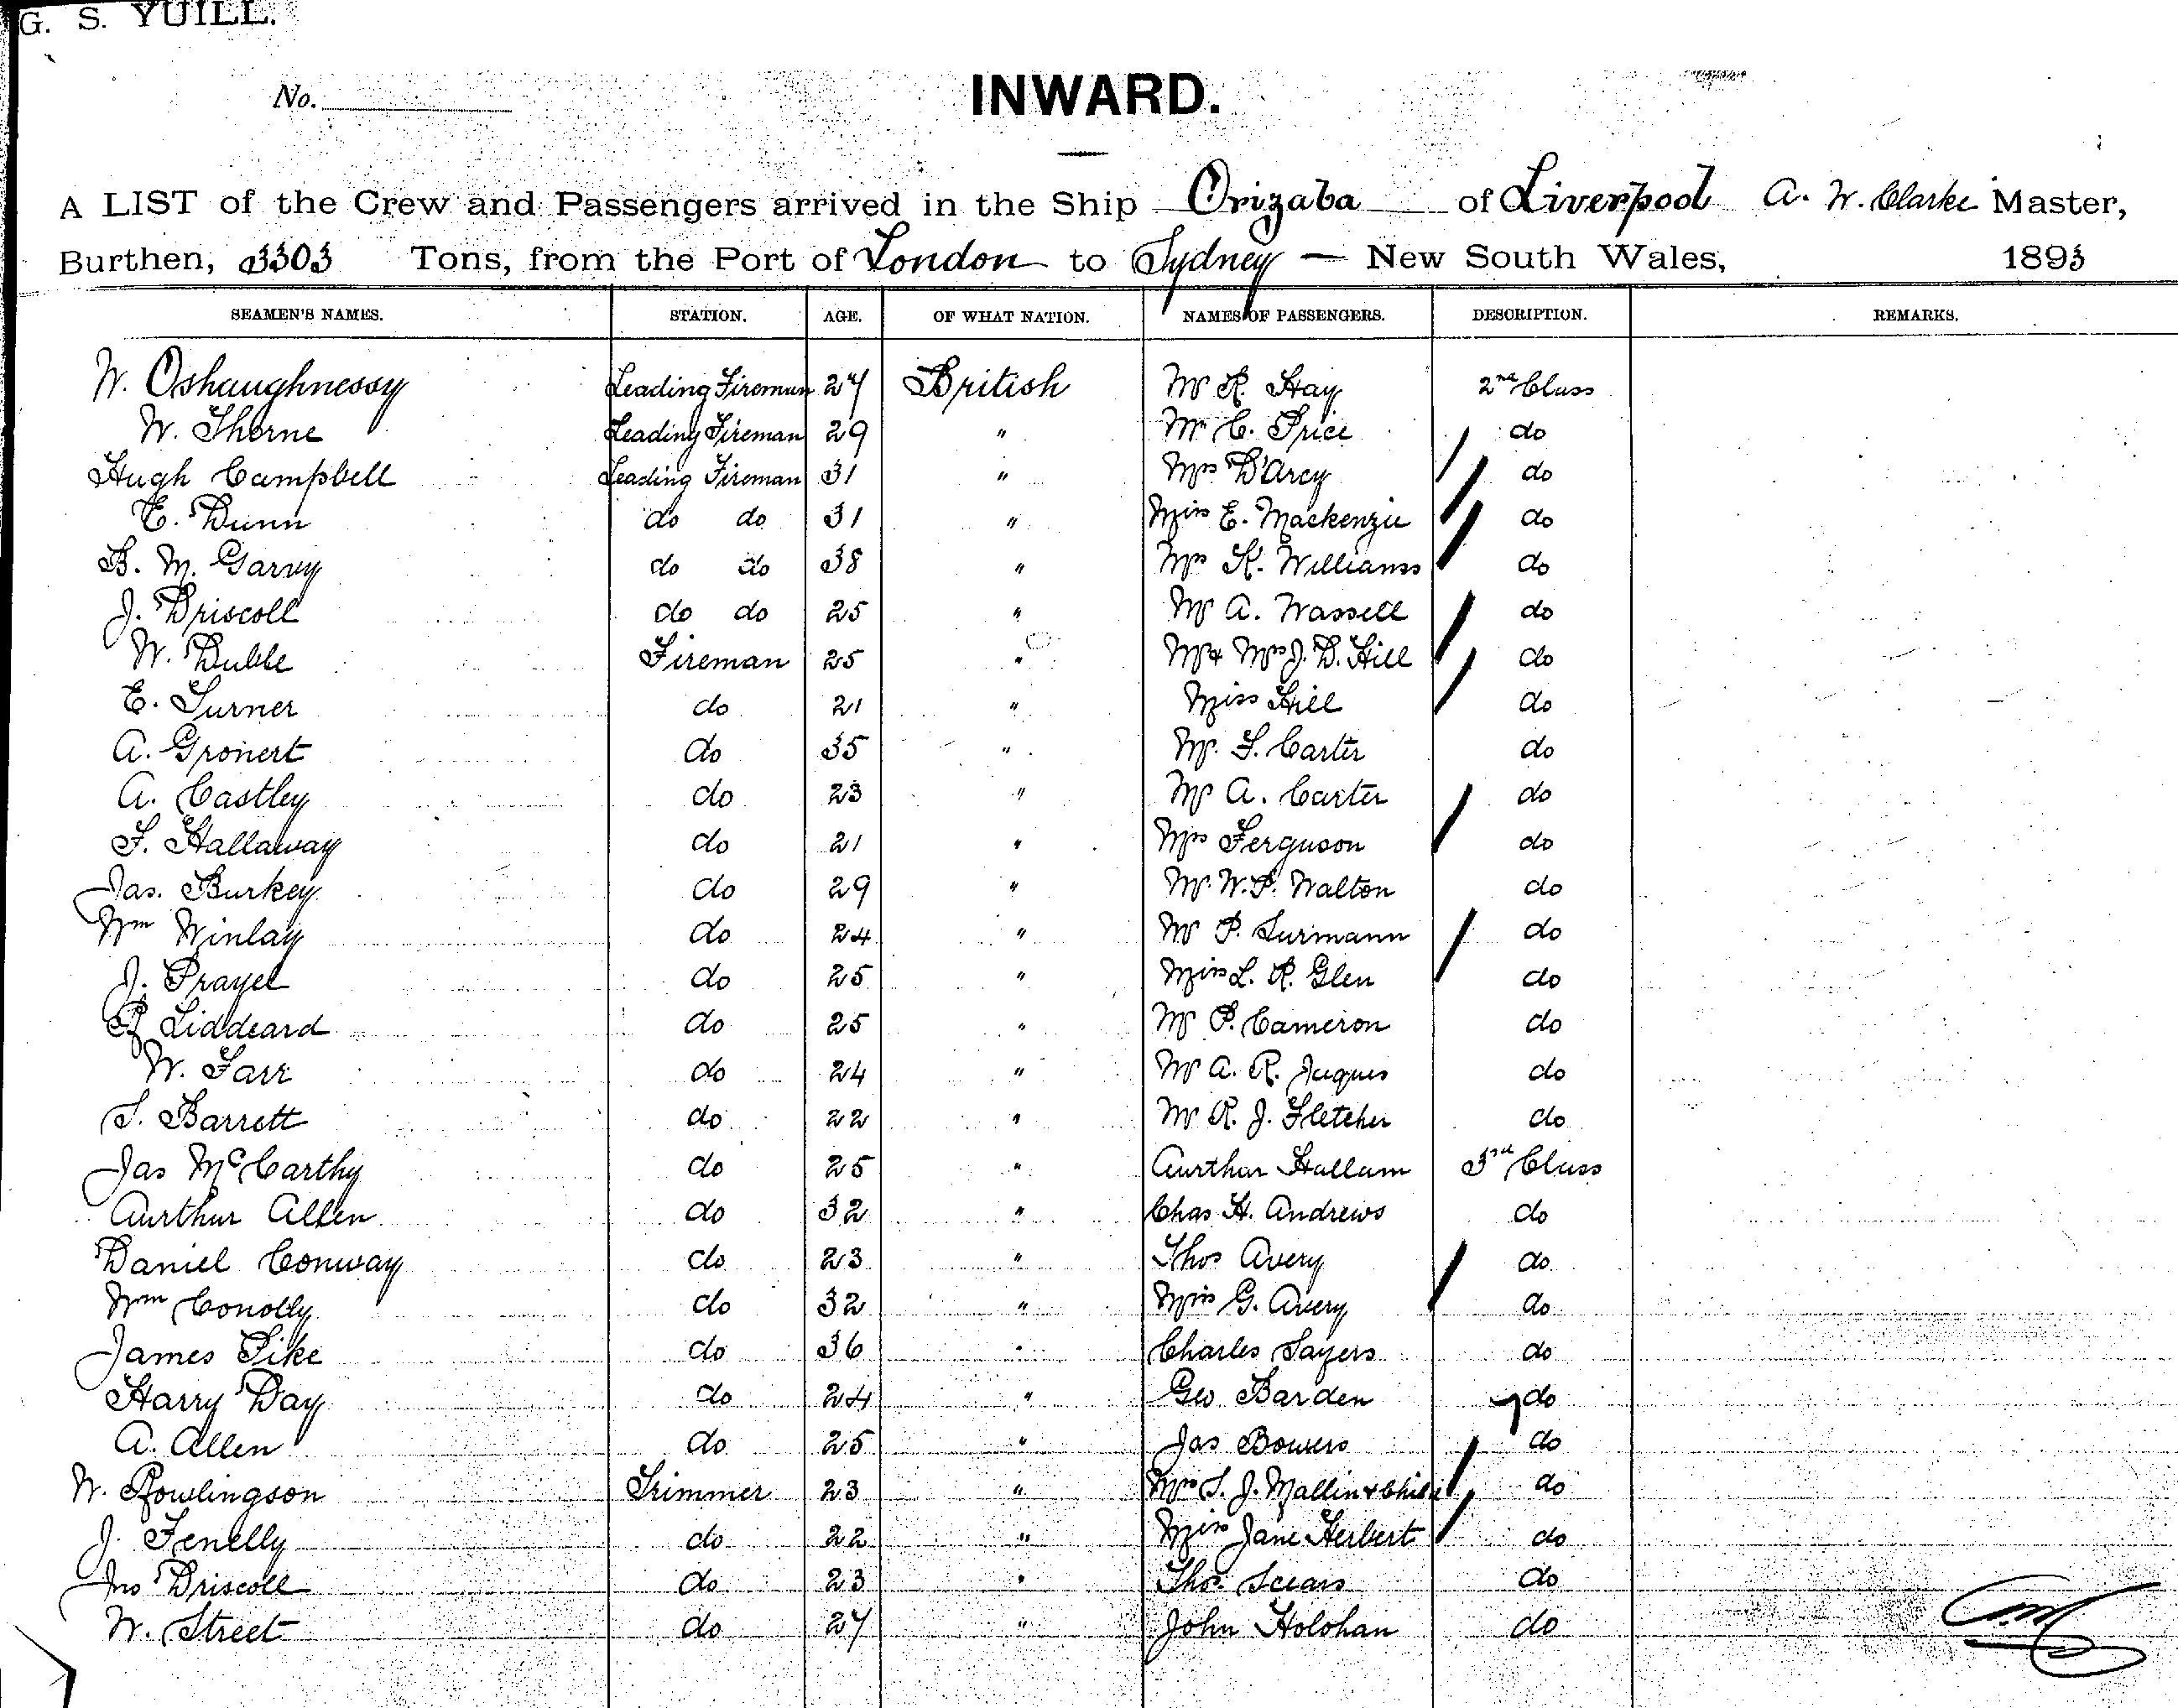 G. S. YUILL.
No.
INWARD.
A LIST of the Crew and Passengers arrived in the Ship Orizaba of Liverpool A. W. Clarke Master,
Burthen, 3303 Tons, from the Port of London to Sydney — New South Wales, 1893
SEAMEN'S NAMES. STATION. AGE. OF WHAT NATION. NAMES OF PASSENGERS. DESCRIPTION. REMARKS.
W. Oshaughnessy Leading Fireman 27 British Mr R. Hay 2nd Class
W. Thorne Leading Fireman 29 " Mr C. Price do
Hugh Campbell Leading Fireman 31 " Mrs D'Arcy do
C. Dunn do do 31 " Miss E. Mackenzie do
B. M. Garvy do do 38 " Mrs K. Williams do
J. Driscoll do do 25 " Mr A. Wassell do
W. Duble Fireman 25 " Mr & Mrs J. D. Hill do
E. Turner do 21 " Miss Hill do
A. Gronert do 35 " Mr. T. Carter do
A. Castley do 23 " Mr A. Carter do
F. Hallaway do 21 " Mrs Ferguson do
Jas. Burkey do 29 " Mr. W. P. Walton do
Wm Winlay do 24 " Mr P. Surmann do
J. Prayel do 25 " Miss L. R. Glen do
Liddeard do 25 " Mr P. Cameron do
W. Farr do 24 " Mr A. R. Jaques do
T. Barrett do 22 " Mr R. J. Fletcher do
Jas McCarthy do 25 " Aurthur Hallam 3rd Class
Aurthur Allen do 32 " Chas H. Andrews do
Daniel Conway do 23 " Thos Avery do
Wm Conolly do 32 " Miss G. Avery do
James Pike do 36 " Charles Sayers do
Harry Day do 24 " Geo Barden do
A. Allen do 25 " Jas Bowers do
W. Rowlingson Trimmer 23 " Mrs T. J. Mallin & Child do
J. Fenelly do 22 " Miss Jane Herbert do
Jno Driscoll do 23 " Thos. Scears do
W. Street do 27 " John Holohan do